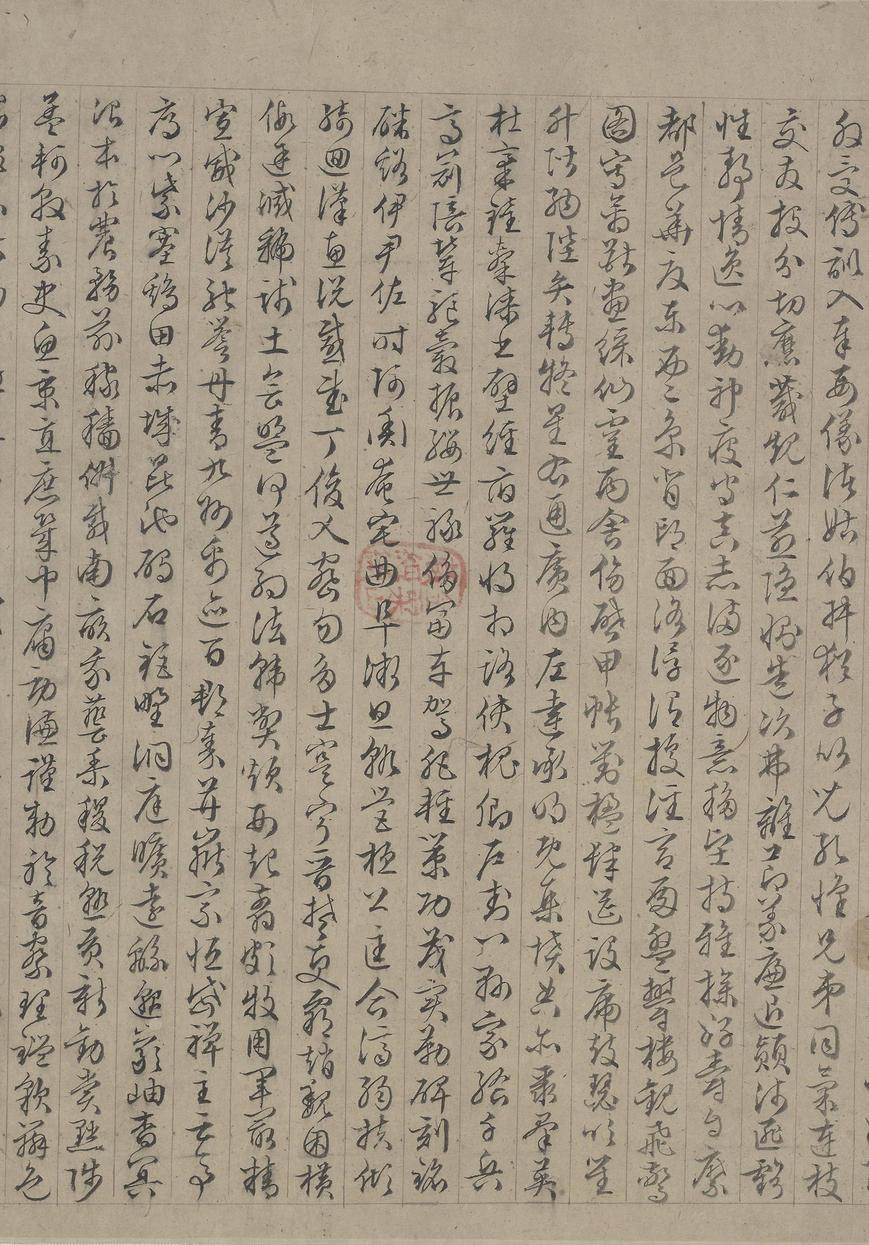 外受傅訓入奉母儀諸姑伯叔猶子比兒孔懷兄弟同氣連枝
交友投分切磨箴規仁慈隱惻造次弗離節義廉退顛沛匪虧
性靜情逸心動神疲守真志滿逐物意移堅持雅操好爵自縻
都邑華夏東西二京背邙面洛浮渭據涇宮殿盤鬱樓觀飛驚
圖寫禽獸畫綵仙靈丙舍傍啟甲帳對楹肆筵設席鼓瑟吹笙
升階納陛弁轉疑星右通廣內左達承明既集墳典亦聚群英
杜稿鍾隸漆書壁經府羅將相路俠槐卿戶封八縣家給千兵
高冠陪輦驅轂振纓世祿侈富車駕肥輕策功茂實勒碑刻銘
磻溪伊尹佐時阿衡奄宅曲阜微旦孰營桓公匡合濟弱扶傾
綺迴漢惠說感武丁俊乂密勿多士寔寧晉楚更霸趙魏困橫
假途滅虢踐土會盟何遵約法韓弊煩刑起翦頗牧用軍最精
宣威沙漠馳譽丹青九州禹跡百郡秦并嶽宗恆岱禪主云亭
雁門紫塞雞田赤城昆池碣石鉅野洞庭曠遠緜邈巖岫杳冥
治本於農務茲稼穡俶載南畝我藝黍稷稅熟貢新勸賞黜陟
孟軻敦素史魚秉直庶幾中庸勞謙謹勑聆音察理鑑貌辨色